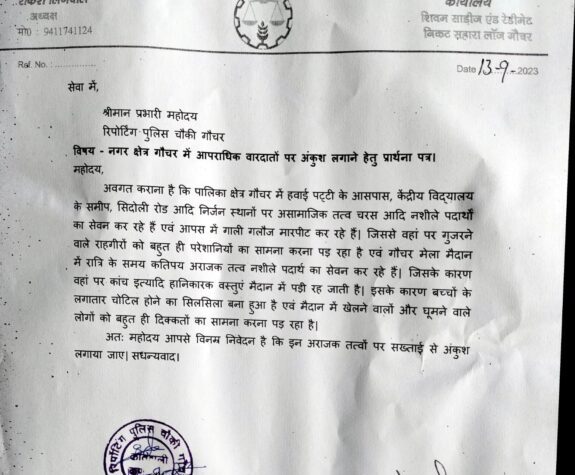 अध्यक्ष
मो0 : 9411741124
कार्यालय
शिवम साड़ीज एंड रेडीमेट
निकट सहारा लॉज गौचर
Ref. No. :
Date 13-9-2023
सेवा में,
श्रीमान प्रभारी महोदय
रिपोर्टिंग पुलिस चौकी गौचर
विषय - नगर क्षेत्र गौचर में आपराधिक वारदातों पर अंकुश लगाने हेतु प्रार्थना पत्र।
महोदय,
अवगत कराना है कि पालिका क्षेत्र गौचर में हवाई पट्टी के आसपास, केंद्रीय विद्यालय
के समीप, सिदोली रोड आदि निर्जन स्थानों पर असामाजिक तत्व चरस आदि नशीले पदार्थों
का सेवन कर रहे हैं एवं आपस में गाली गलौज मारपीट कर रहे हैं। जिससे वहां पर गुजरने
वाले राहगीरों को बहुत ही परेशानियों का सामना करना पड़ रहा है एवं गौचर मेला मैदान
में रात्रि के समय कतिपय अराजक तत्व नशीले पदार्थ का सेवन कर रहे हैं। जिसके कारण
वहां पर कांच इत्यादि हानिकारक वस्तुएं मैदान में पड़ी रह जाती है। इसके कारण बच्चों के
लगातार चोटिल होने का सिलसिला बना हुआ है एवं मैदान में खेलने वालों और घूमने वाले
लोगों को बहुत ही दिक्कतों का सामना करना पड़ रहा है।
अतः महोदय आपसे विनम्र निवेदन है कि इन अराजक तत्वों पर सख्ताई से अंकुश
लगाया जाए। सधन्यवाद।
रिपोर्टिंग पुलिस चौकी